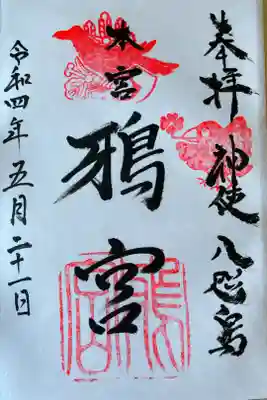 奉拝 神使 八咫烏
本宮
鴉宮
令和四年五月二十一日